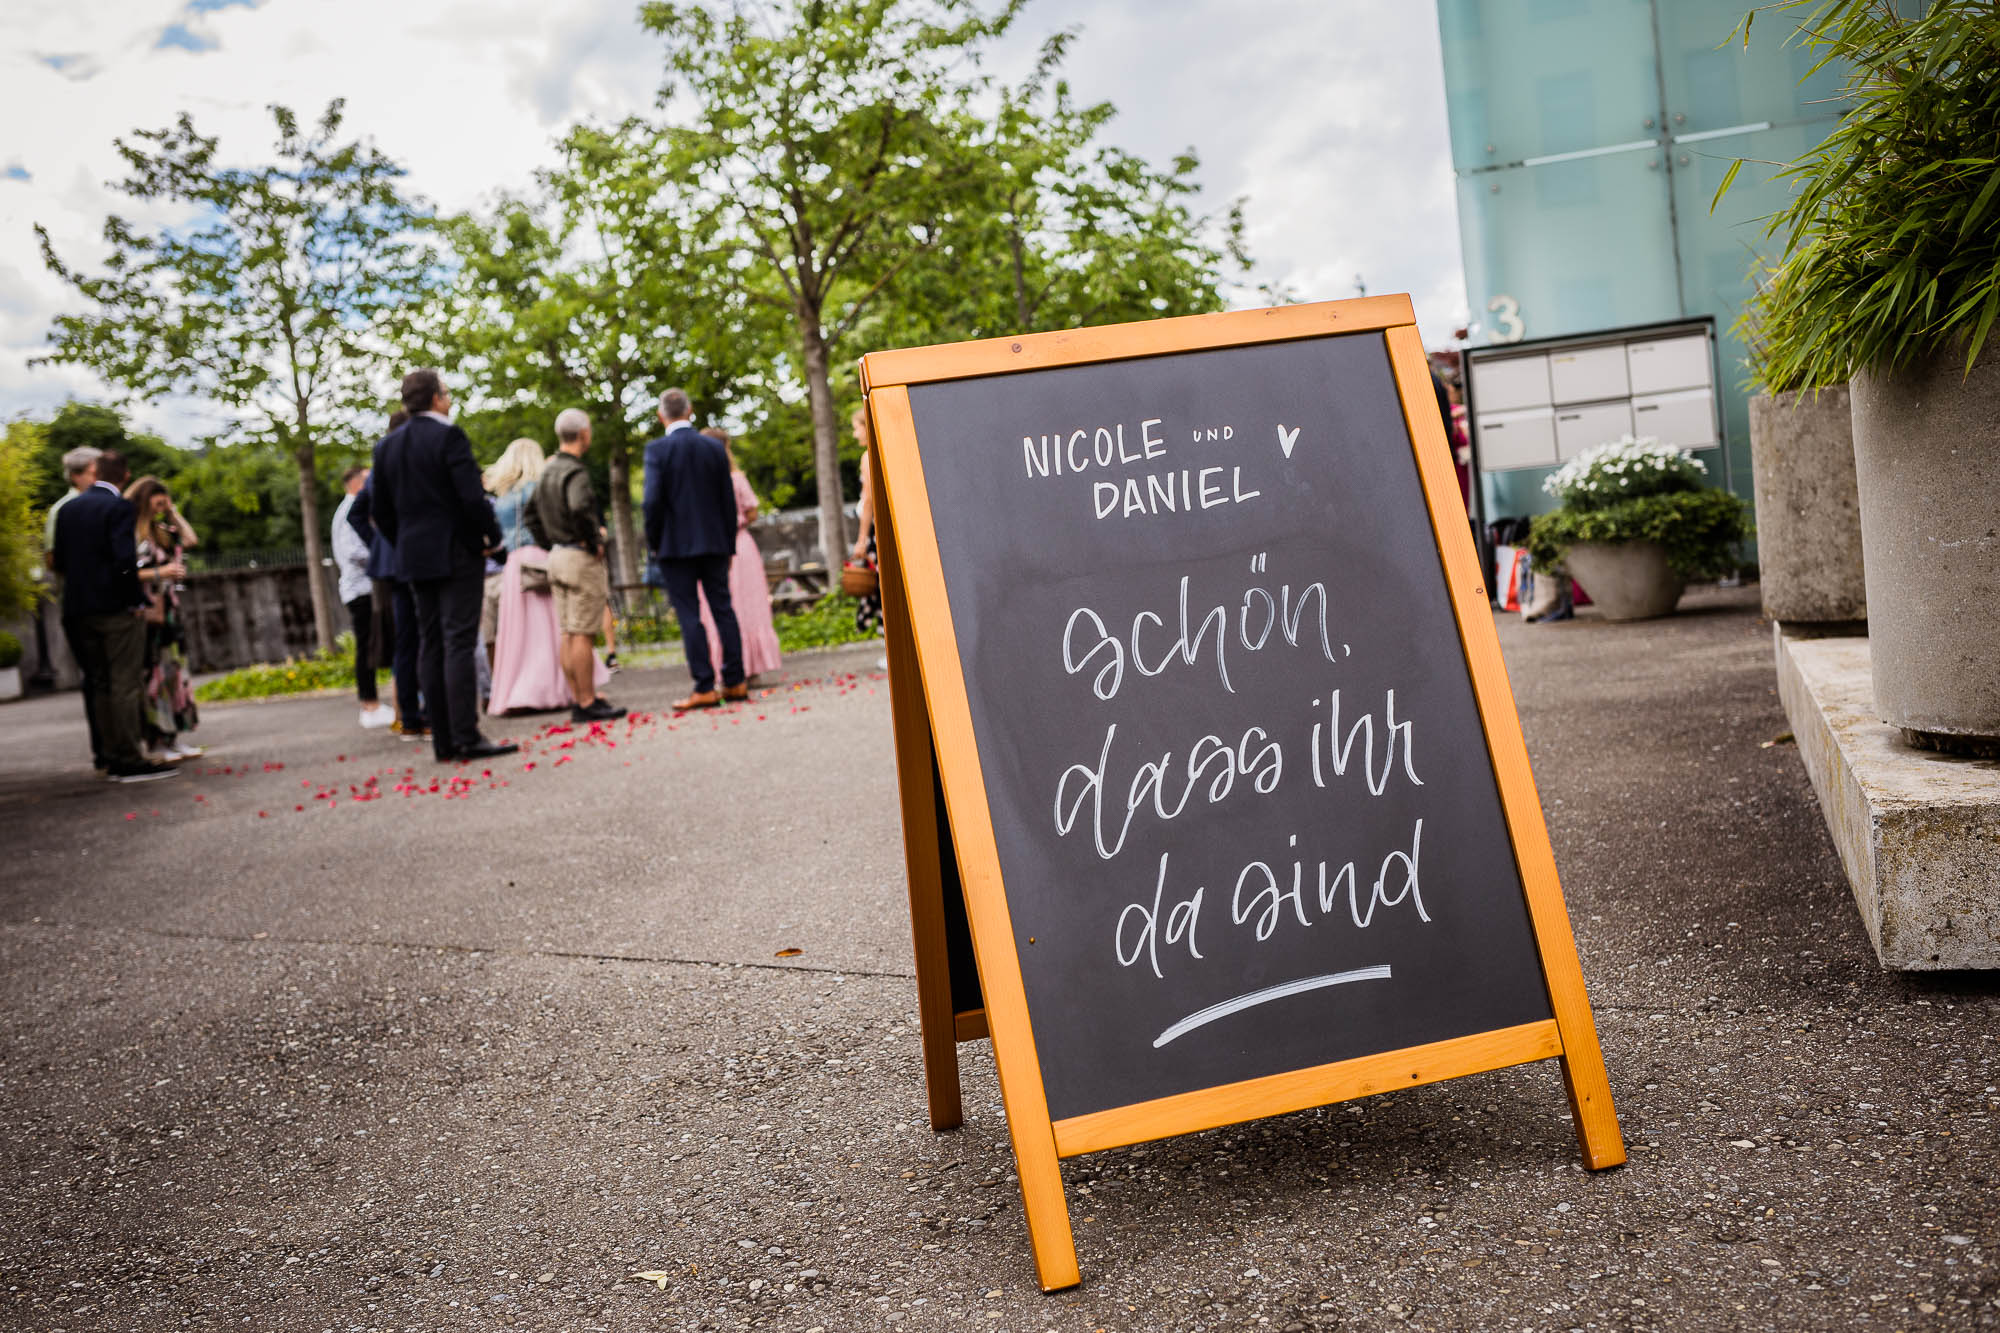 NICOLE UND
DANIEL
schön,
dass ihr
da sind
3